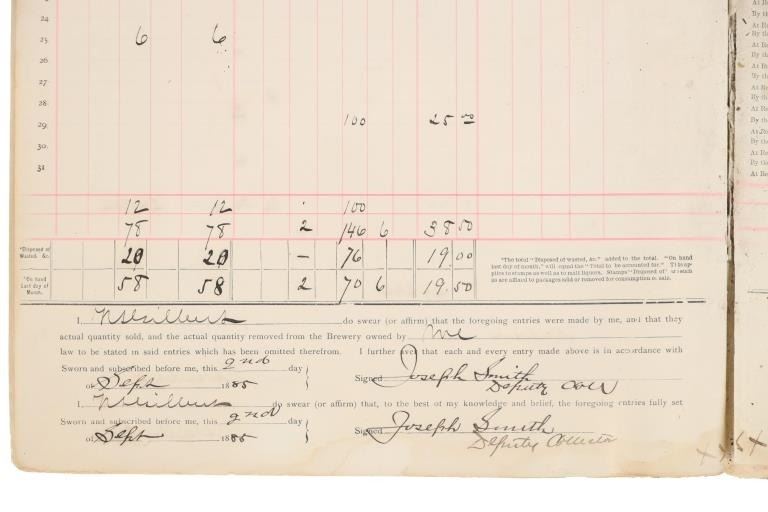 24
25. 6 6
26.
27.
28.
29. 100 25 00
30.
31.
12 12 100
78 78 2 146 6 38 50
"Disposed of Wasted, &c. 20 20 – 76 19.00
"On hand Last day of Month. 58 58 2 70 6 19.50
"The total "Disposed of wasted, &c." added to the total. "On hand
last day of month," will equal the "Total to be accounted for." This ap-
plies to stamps as well as to malt liquors. Stamps "Disposed of" as such
as are affixed to packages sold or removed for consumption or sale.
I, do swear (or affirm) that the foregoing entries were made by me, and that they
actual quantity sold, and the actual quantity removed from the Brewery owned by me
law to be stated in said entries which has been omitted therefrom. I further aver that each and every entry made above is in accordance with
Sworn and subscribed before me, this 2nd day
of Sept 1885 Signed Joseph Smith
Deputy Coll
I, do swear (or affirm) that, to the best of my knowledge and belief, the foregoing entries fully set
Sworn and subscribed before me, this 2nd day
of Sept 1885 Signed Joseph Smith
Deputy Collector